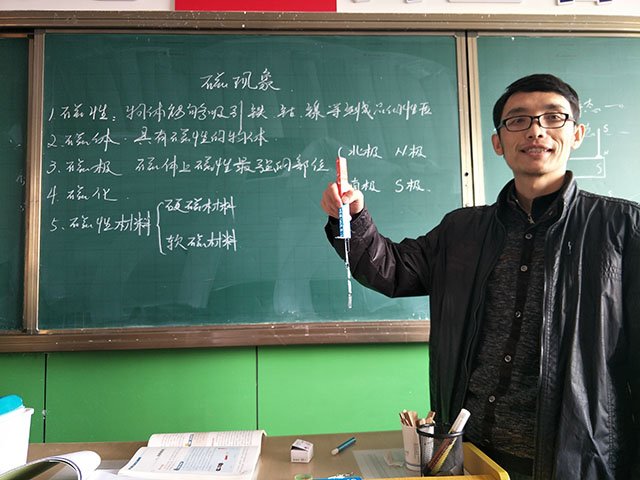 磁现象
1 磁性：物体能够吸引铁 钴 镍等物质的性质
2 磁体 具有磁性的物体
3. 磁极 磁体上磁性最强的部位 { 北极 N极
南极 S极.
4. 磁化
5、磁性材料 { 硬磁材料
软磁材料
S
S